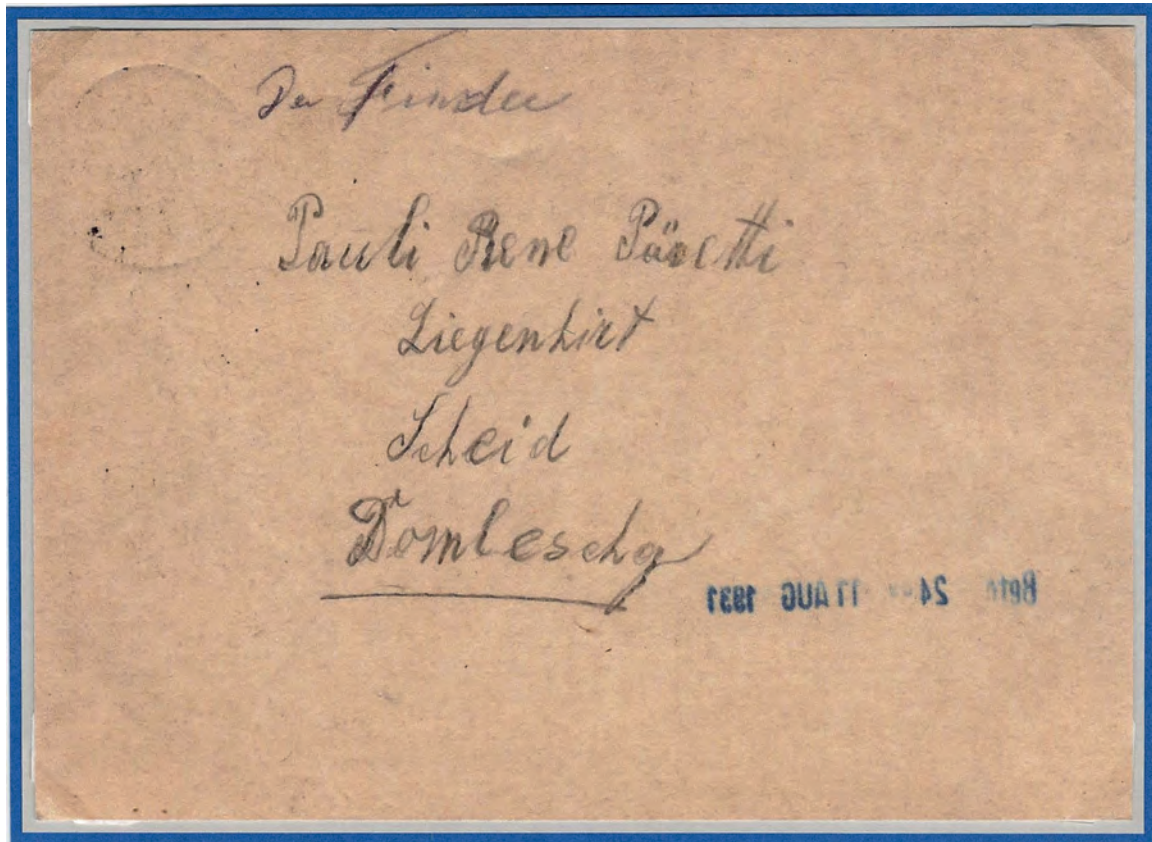 Der Finder
Pauli Rene Pävetti
Ziegenhirt
Scheid
Domleschg
Beto 24 11 AUG 1931